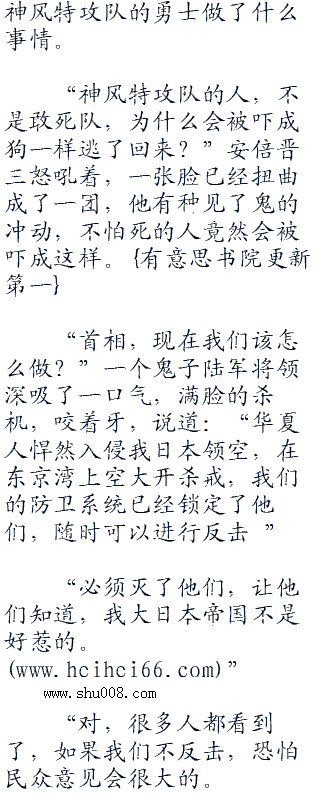 神风特攻队的勇士做了什么
事情。
“神风特攻队的人，不
是敢死队，为什么会被吓成
狗一样逃了回来？”安倍晋
三怒吼着，一张脸已经扭曲
成了一团，他有种见了鬼的
冲动，不怕死的人竟然会被
吓成这样。{有意思书院更新
第一}
“首相，现在我们该怎
么做？”一个鬼子陆军将领
深吸了一口气，满脸的杀
机，咬着牙，说道：“华夏
人悍然入侵我日本领空，在
东京湾上空大开杀戒，我们
的防卫系统已经锁定了他
们，随时可以进行反击 ”
“必须灭了他们，让他
们知道，我大日本帝国不是
好惹的。
(www.hcihci66.com)”
www.shu008.com
“对，很多人都看到
了，如果我们不反击，恐怕
民众意见会很大的。